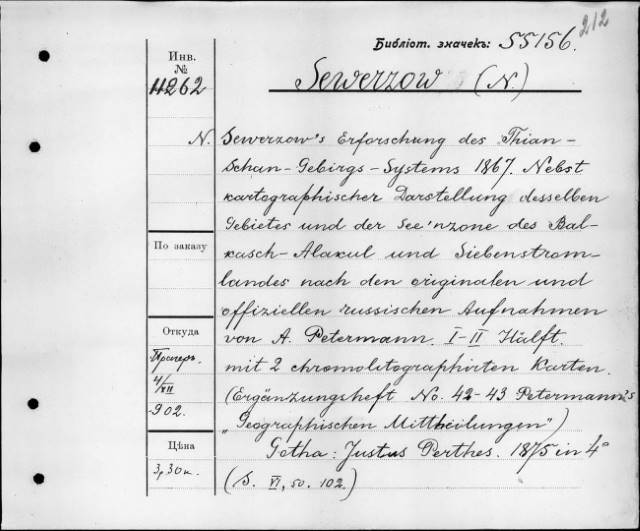 212
Библіот. значекъ: 55156.
Инв.
№
11262
Sewerzow (N.)
N. Sewerzow's Erforschung des Thian-
Schan-Gebirgs-Systems 1867. Nebst
kartographischer Darstellung desselben
Gebietes und der See'nzone des Bal-
kasch-Alakul und Siebenstrom-
landes nach den originalen und
offiziellen russischen Aufnahmen
von A. Petermann. I-II Hälft.
mit 2 chromolitographirten Karten.
(Ergänzungsheft No. 42-43 Petermann's
"Geographischen Mittheilungen")
Gotha: Justus Perthes. 1875 in 4°
(S. VI, 50. 102.)
По заказу
Откуда
Прагеръ.
4/XII
902.
Цѣна
3р30к.